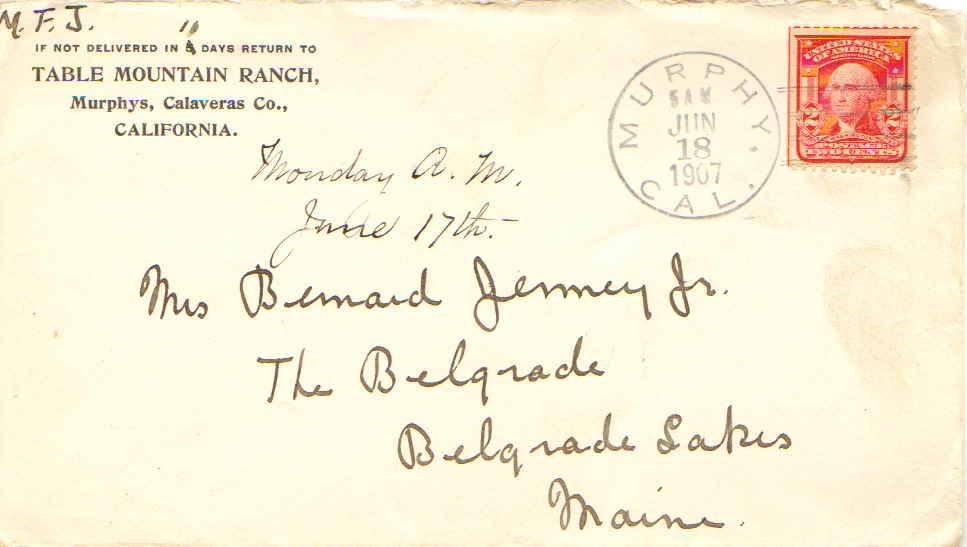 M. F. J. "
IF NOT DELIVERED IN 5 DAYS RETURN TO
TABLE MOUNTAIN RANCH,
Murphys, Calaveras Co.,
CALIFORNIA.
MURPHY.
5 AM
JUN
18
1907
CAL.
UNITED STATES
OF AMERICA
2 2
Monday A. M.
June 17th.
Mrs Bernard Jenney Jr.
The Belgrade
Belgrade Lakes
Maine.